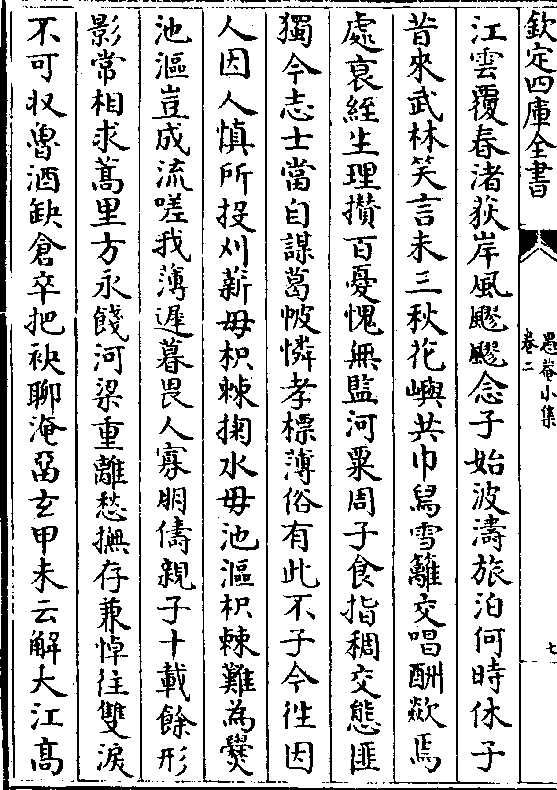 欽定四庫全書
愚菴小集
卷二
七
江雲覆春渚荻岸風飂飂念子始波濤旅泊何時休子
昔來武林笑言未三秋花嶼共巾舄雪籬交唱酬歘焉
處哀絰生理攢百憂愧無監河粟周子食指稠交態匪
獨今志士當自謀葛帔憐孝標薄俗有此不子今往因
人因人慎所投刈薪毋枳棘掬水毋池漚枳棘難為爨
池漚豈成流嗟我薄遲暮畏人寡朋儔親子十載餘形
影常相求蒿里方永餞河梁重離愁撫存兼悼往雙淚
不可収魯酒缺倉卒把袂聊淹畱玄甲未云解大江高